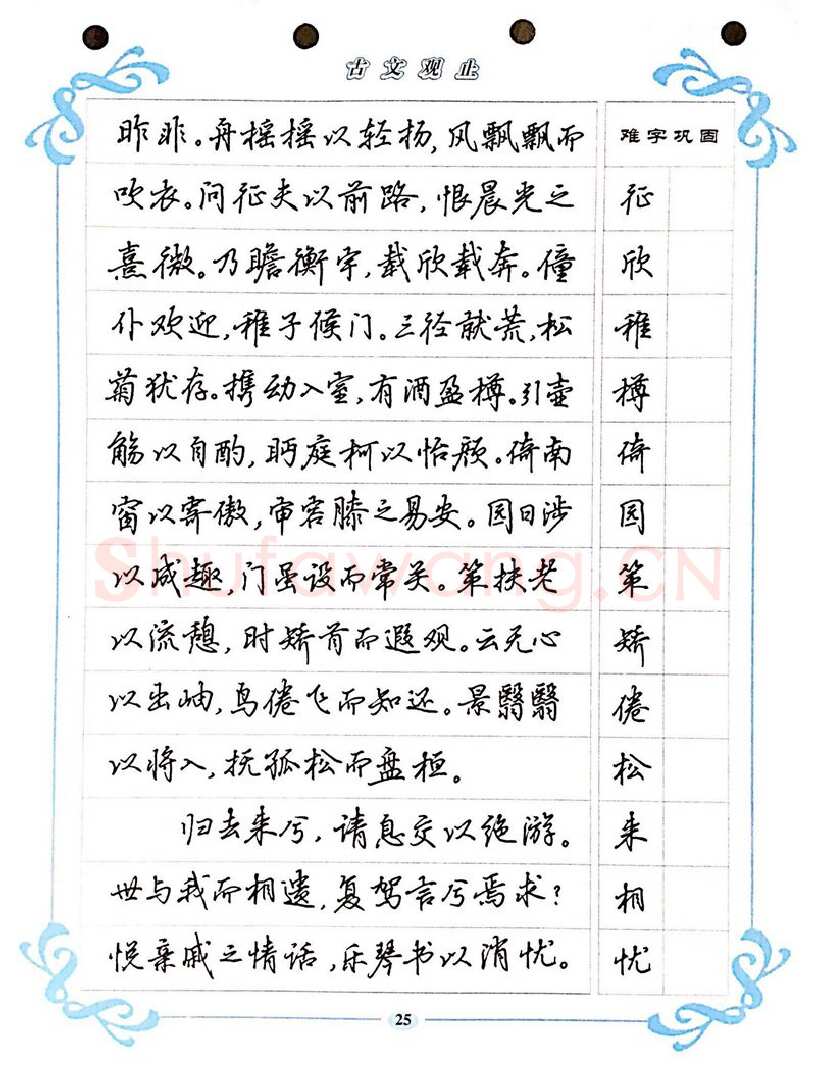 古文观止
昨非。舟摇摇以轻杨,风飘飘而
难字巩固
吹衣。问征夫以前路,恨晨光之
征
熹微。乃瞻衡宇,载欣载奔。僮
欣
仆欢迎,稚子候门。三径就荒,松
稚
菊犹存。携幼入室,有酒盈樽。引壶
樽
觞以自酌,眄庭柯以怡颜。倚南
倚
窗以寄傲,审容膝之易安。园日涉
园
以成趣,门虽设而常关。策扶老
策
以流憩,时矫首而遐观。云无心
矫
以出岫,鸟倦飞而知还。景翳翳
倦
以将入,抚孤松而盘桓。
松
归去来兮,请息交以绝游。
来
世与我而相遗,复驾言兮焉求?
相
悦亲戚之情话,乐琴书以消忧。
忧
25
Shufawang.CN